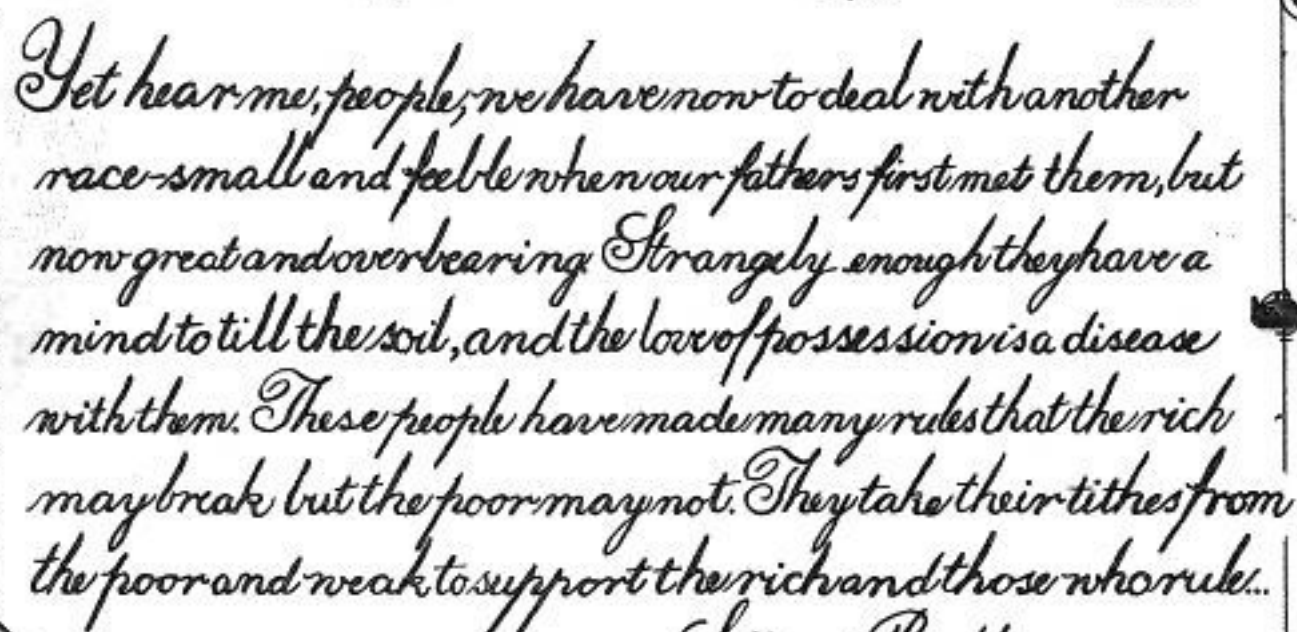 Yet hear me, people, we have now to deal with another
race-small and feeble when our fathers first met them, but
now great and overbearing. Strangely enough they have a
mind to till the soil, and the love of possession is a disease
with them. These people have made many rules that the rich
may break but the poor may not. They take their tithes from
the poor and weak to support the rich and those who rule...